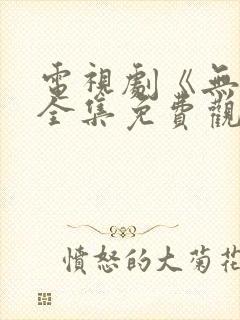 電視劇《無
全集免費觀
憤怒的大菊花